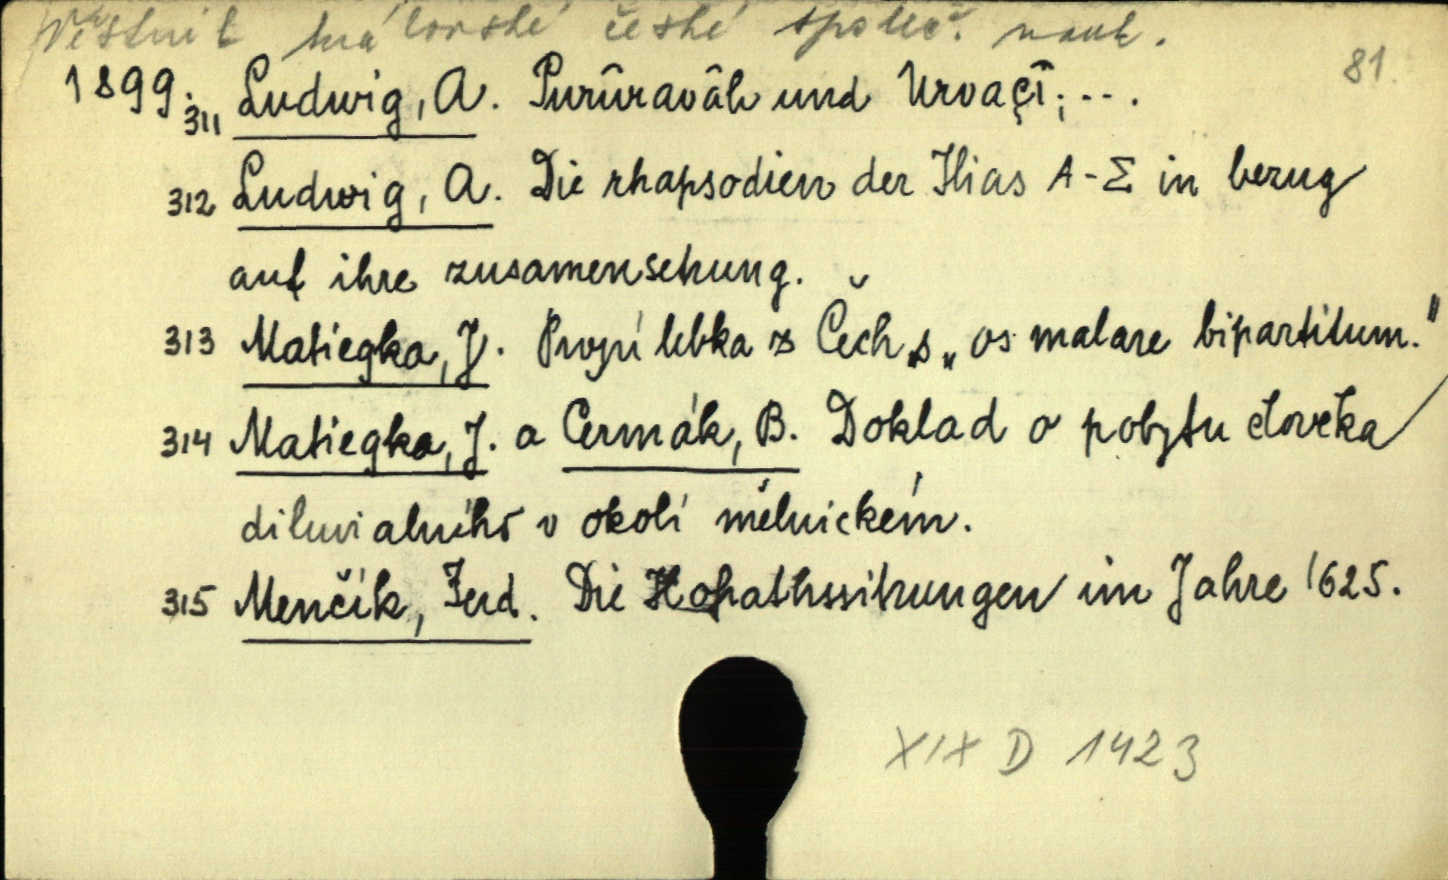 Věstník královské české společ. nauk.
81.
1899. 311 Ludwig, A. Purûravâh und Urvaçî; --.
312 Ludwig, A. Die rhapsodien der Ilias A-Σ in bezug
auf ihre zusamensetzung.
313 Matiegka, J. lebka z Čech s „os malare bipartitum."
314 Matiegka, J. a Cermák, B. Doklad o pobytu človeka
diluvialního v okolí mělnickém.
315 Menčík, Ferd. Die Hofrathssitzungen im Jahre 1625.
XIX D 1423